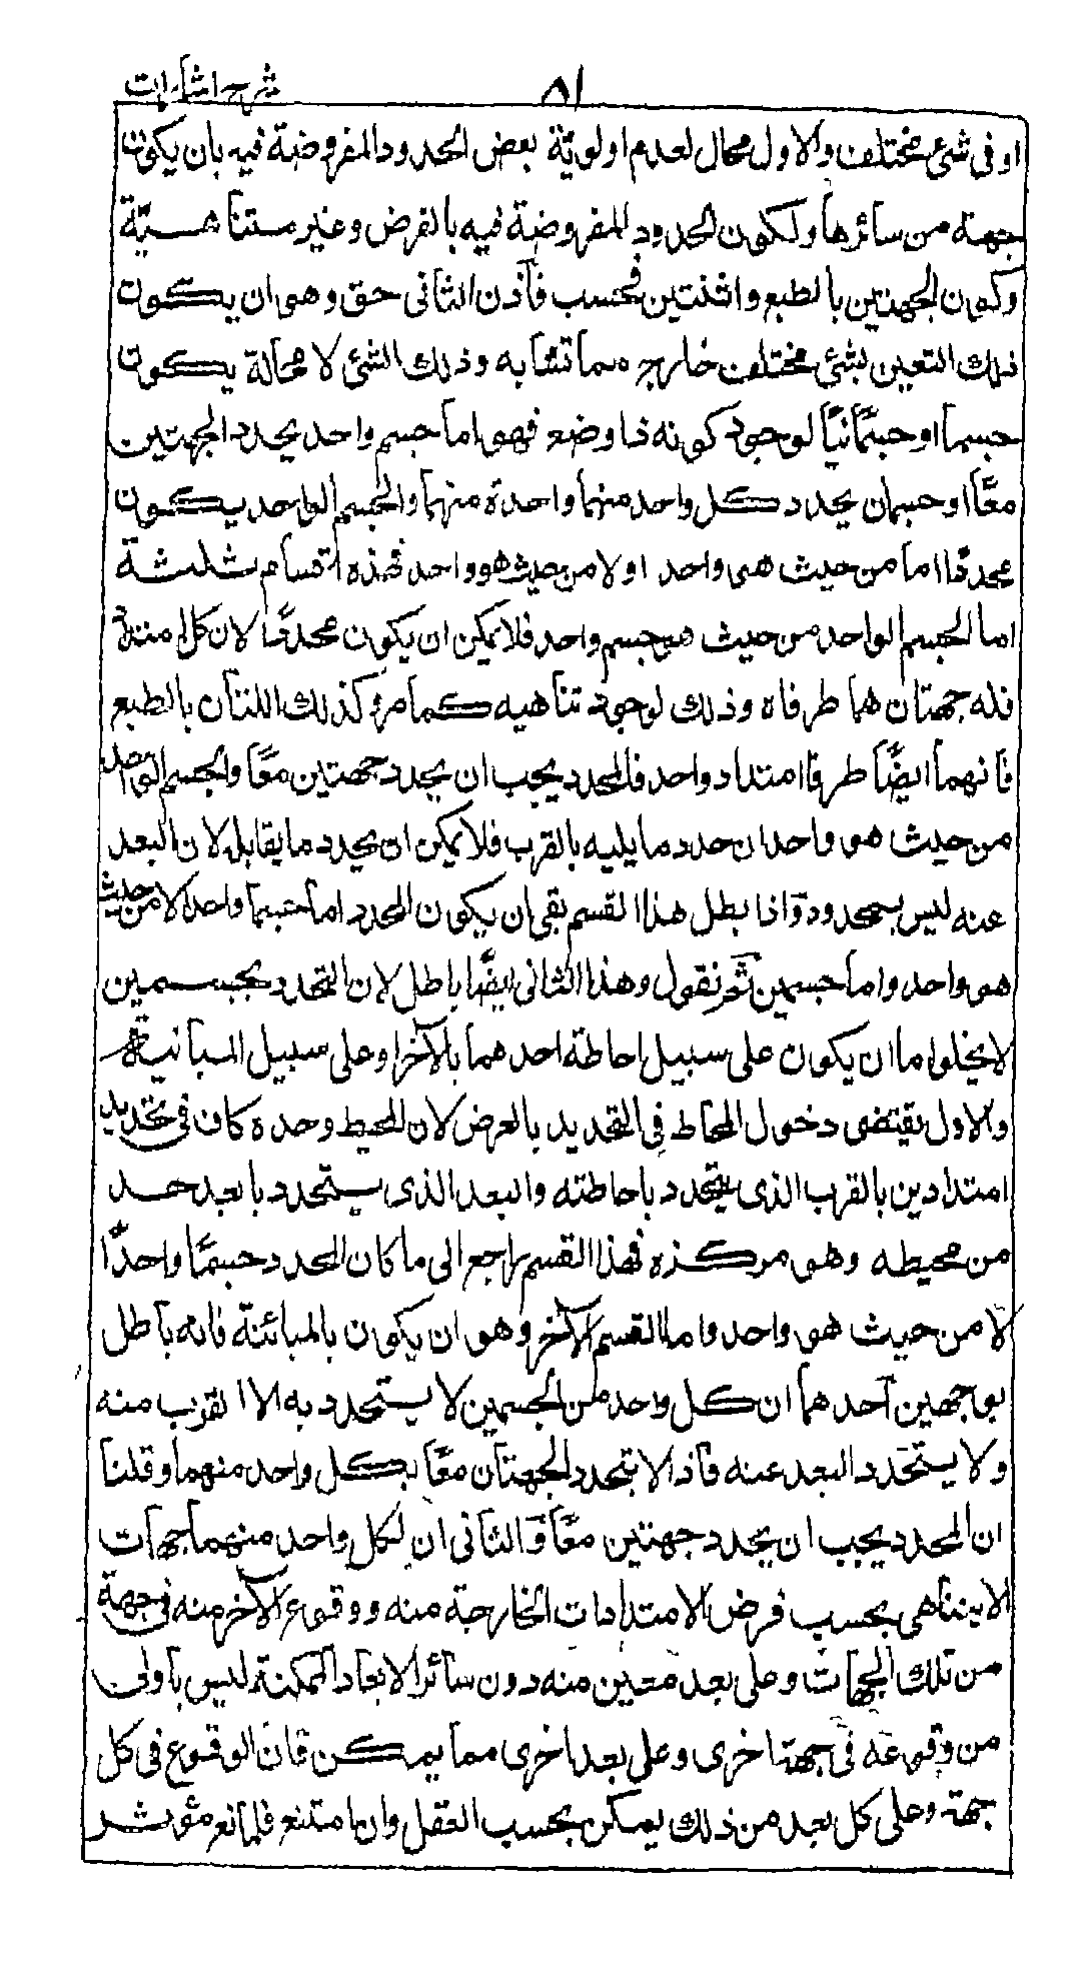 ٨١ شرح اشارات
او فى شئ مختلف والاول محال لعدم اولوية بعض الحدود المفروضة فيه بان يكون
جهة من سائرها ولكون الحدود المفروضة فيه بالفرض وغير متناهية
وكون الجهتين بالطبع واثنتين فحسب فاذن الثانى حق وهو ان يكون
ذلك التعين بشئ مختلف خارج مما تشابه وذلك الشئ لا محالة يكون
جسما او جسمانيًا لوجود كونه ذا وضع فهو اما جسم واحد يحدد الجهتين
معًا او جسمان يحدد كل واحد منهما واحدة منهما والجسم الواحد يكون
محددًا اما من حيث هو واحد او لا من حيث هو واحد فهذه اقسام ثلثة
اما الجسم الواحد من حيث هو جسم واحد فلا يمكن ان يكون محددًا لان كل امتداد
فله جهتان هما طرفاه وذلك لوجود تناهيه كما مر وكذلك اللتان بالطبع
فانهما ايضًا طرفا امتداد واحد فالمحدد يجب ان يحدد جهتين معًا والجسم الواحد
من حيث هو واحد ان حدد ما يليه بالقرب فلا يمكن ان يحدد ما يقابله لان البعد
عنه ليس بمحدود واذا بطل هذا القسم بقى ان يكون المحدد اما جسما واحدا لا من حيث
هو واحد واما جسمين ثم نقول وهذا الثانى ايضًا باطل لان التحدد بجسمين
لا يخلو اما ان يكون على سبيل احاطة احدهما بالآخر او على سبيل المباينة
والاول يقتضى دخول المحاط فى التحديد بالعرض لان المحيط وحده كاف فى تحديد
امتدادين بالقرب الذى يتحدد باحاطته والبعد الذى يتحدد بابعد حد
من محيطه وهو مركزه فهذا القسم راجع الى ما كان المحدد جسمًا واحدًا
لا من حيث هو واحد واما القسم الآخر وهو ان يكون بالمبائنة فانه باطل
بوجهين احدهما ان كل واحد من الجسمين لا يتحدد به الا القرب منه
ولا يتحدد البعد عنه فاذا لا يتحدد الجهتان معًا بكل واحد منهما وقلنا
ان المحدد يجب ان يحدد جهتين معًا والثانى ان لكل واحد منهما جهات
لا يتناهى بحسب فرض الامتدادات الخارجة منه ووقوع الآخر منه فى جهة
من تلك الجهات وعلى بعد معين منه دون سائر الابعاد الممكنة ليس باولى
من وقوعه فى جهة اخرى وعلى بعد اخرى مما يمكن فان الوقوع فى كل
جهة وعلى كل بعد من ذلك يمكن بحسب العقل وان امتنع فلمانع مؤثر